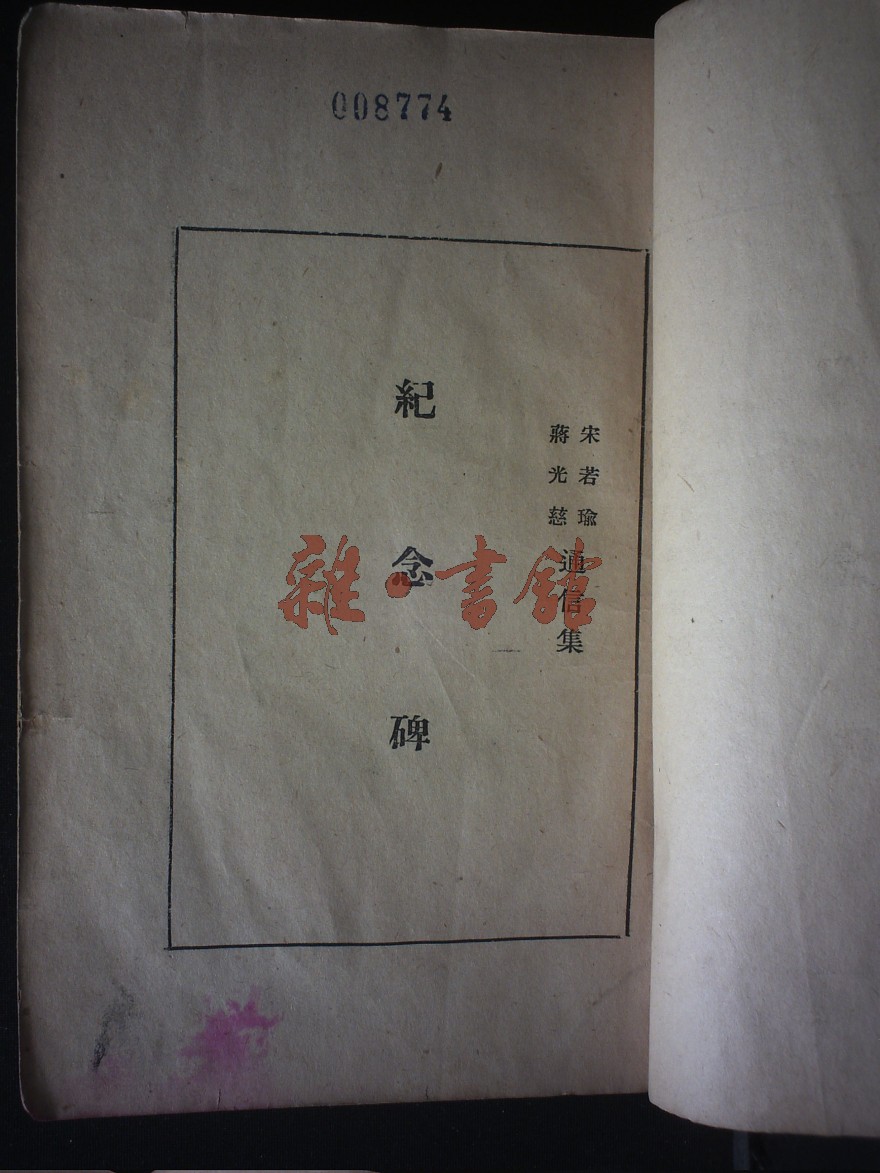 008774
宋若瑜
蔣光慈
通信集
紀念碑
雜·書館